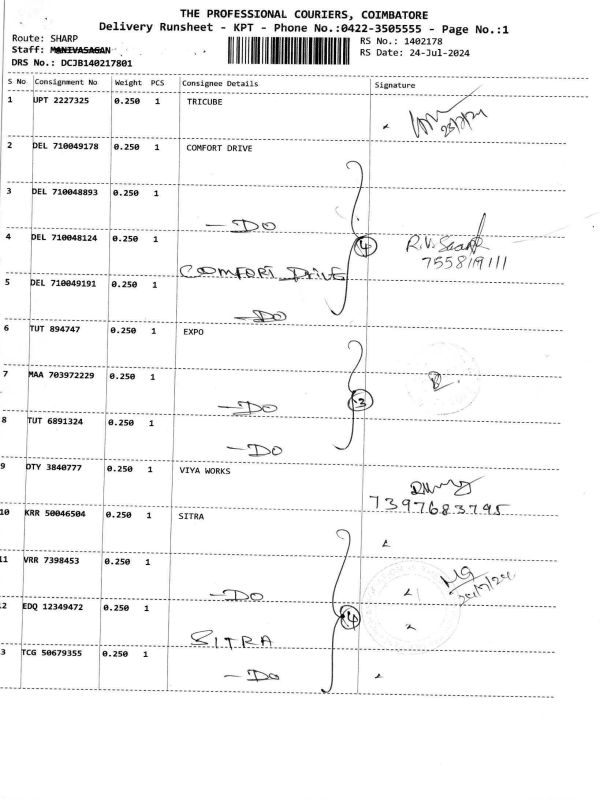 THE PROFESSIONAL COURIERS, COIMBATORE
Delivery Runsheet - KPT - Phone No.:0422-3505555 - Page No.:1
Route: SHARP
RS No.: 1402178
Staff: MANIVASAGAN
RS Date: 24-Jul-2024
DRS No.: DCJB140217801
S No Consignment No Weight PCS Consignee Details Signature
1 UPT 2227325 0.250 1 TRICUBE
2 DEL 710049178 0.250 1 COMFORT DRIVE
3 DEL 710048893 0.250 1
- DO
4 DEL 710048124 0.250 1 4
COOMFORT DRIVE
7558191111
5 DEL 710049191 0.250 1
- DO
6 TUT 894747 0.250 1 EXPO
7 MAA 703972229 0.250 1
- DO 3
8 TUT 6891324 0.250 1
- DO
9 DTY 3840777 0.250 1 VIYA WORKS
7397683795
10 KRR 50046504 0.250 1 SITRA
11 VRR 7398453 0.250 1
- DO
2 EDQ 12349472 0.250 1 4
SITRA
3 TCG 50679355 0.250 1
- DO